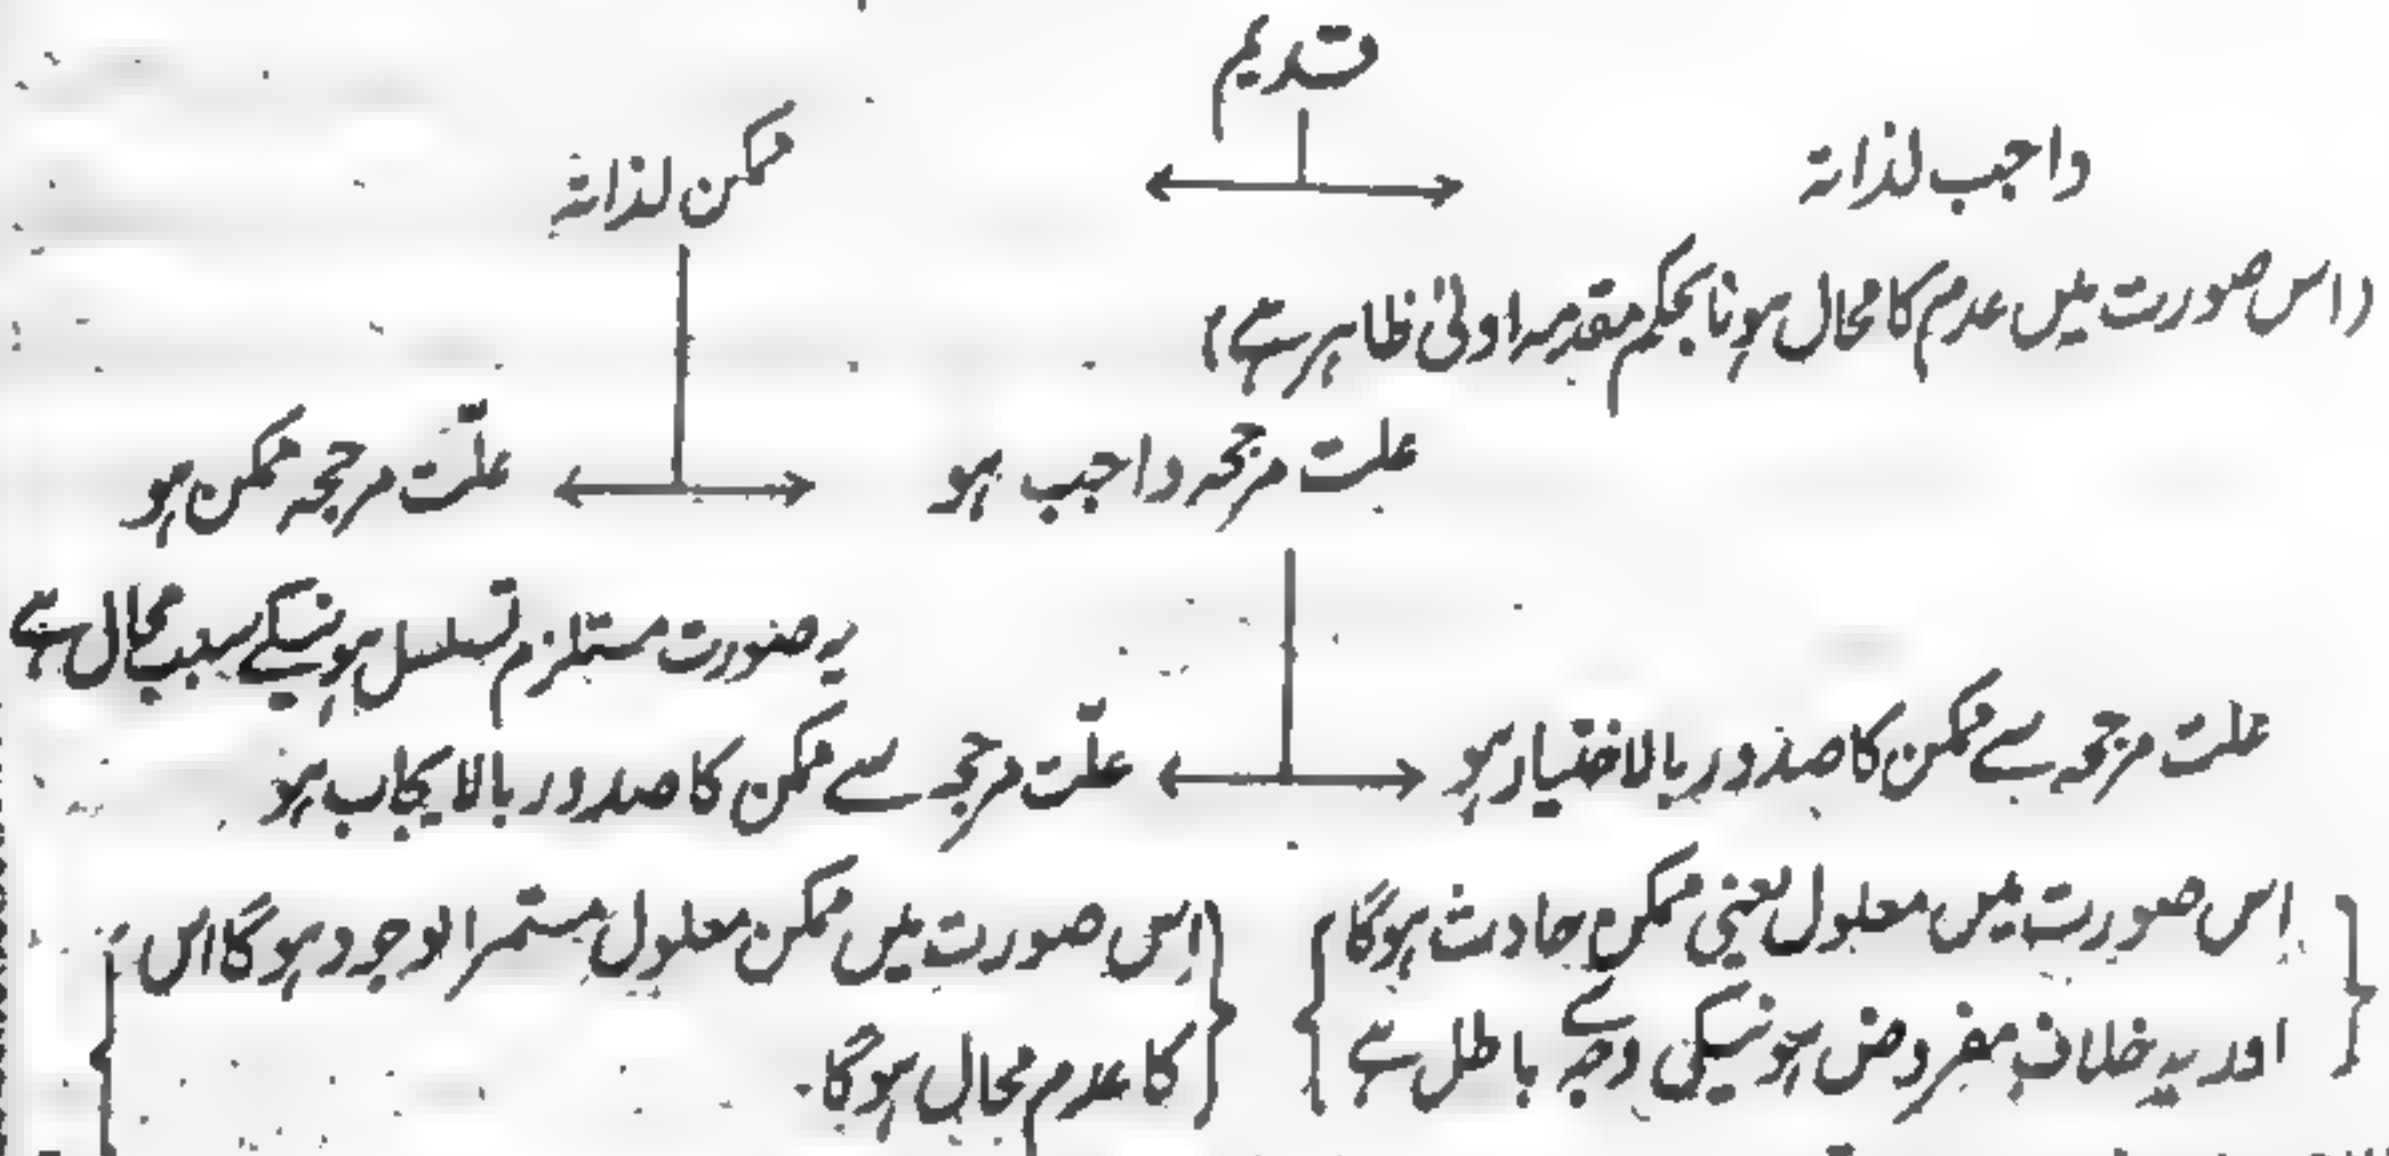 قدیم
واجب لذاتہ
ممکن لذاتہ
(اس صورت میں عدم کا محال ہونا بحکم مقدمہ اولیٰ ظاہر ہے)
علت مرجحہ واجب ہو
علّت مرجحہ ممکن ہو
یہ صورت مستلزم تسلسل ہونیکے سبب محال ہے
علت مرجحہ سے ممکن کا صدور بالاختیار ہو
علّت مرجحہ سے ممکن کا صدور بالایجاب ہو
اِس صورت میں معلول یعنی ممکن حادث ہوگا
اور یہ خلاف مفروض ہونیکی وجہ سے باطل ہے
اِس صورت میں ممکن معلول مستمر الوجود ہوگا اس
کا عدم محال ہوگا۔